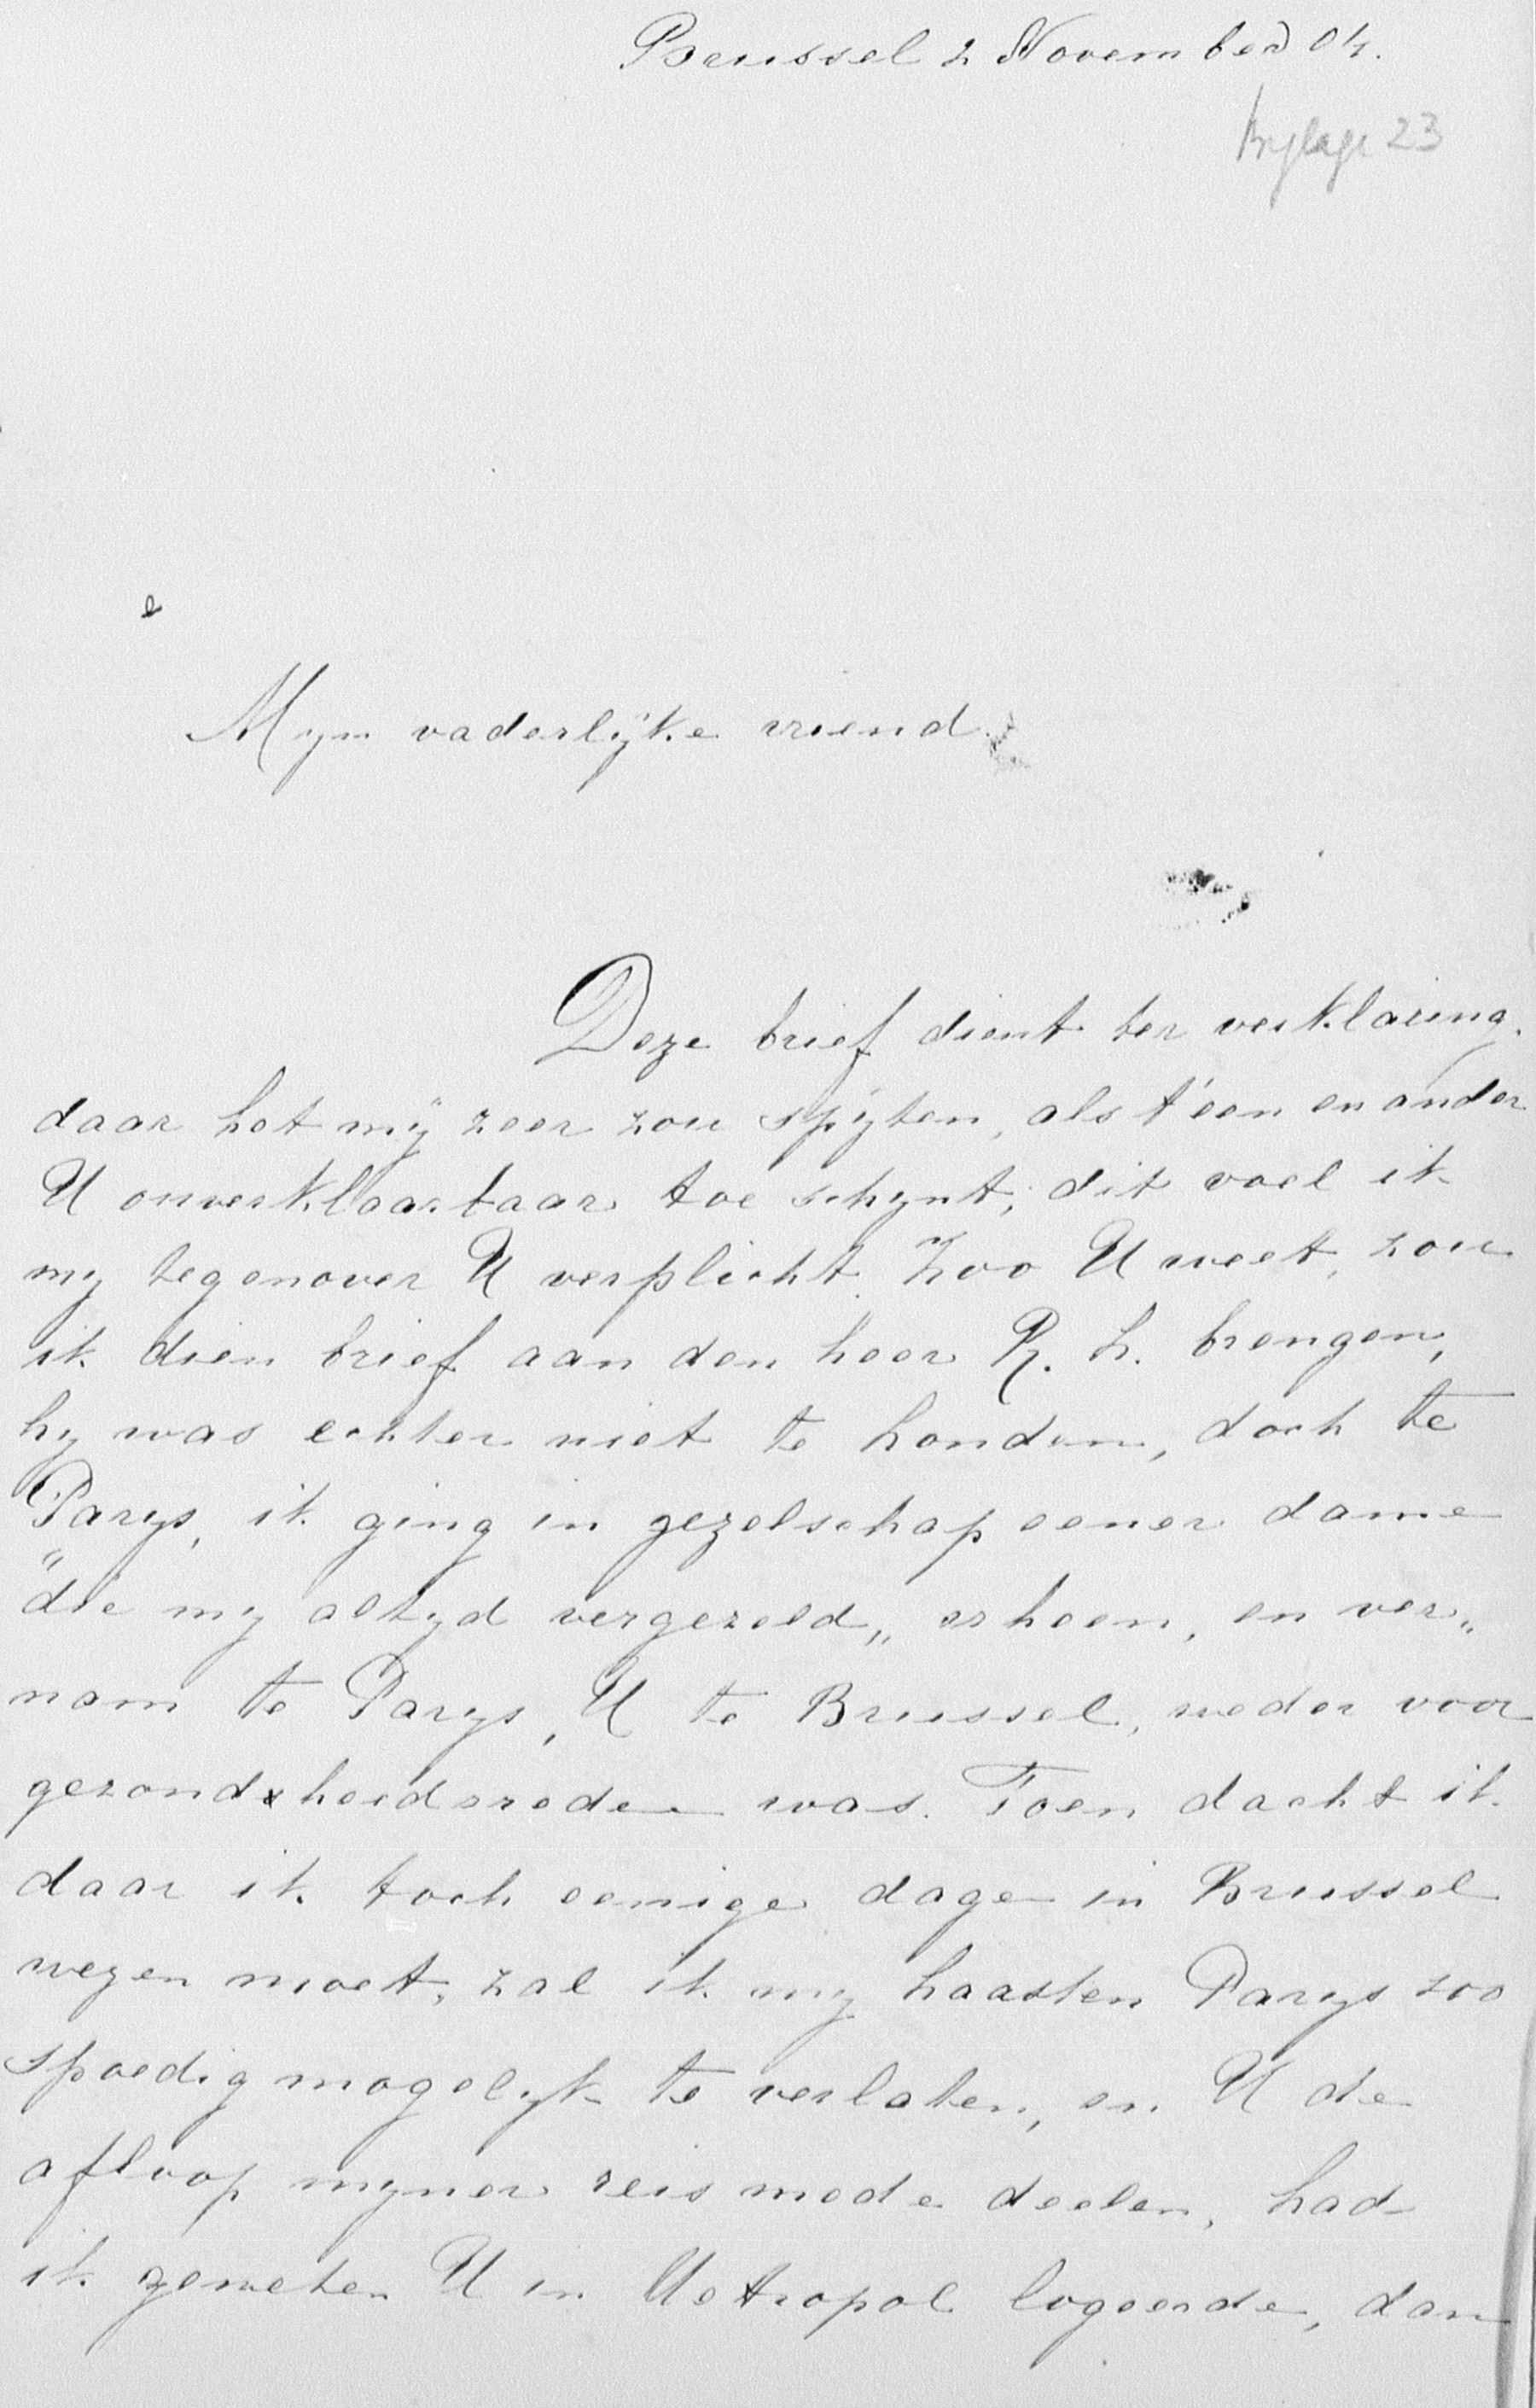 Brussel 2 November 04.
Bijlage 23
Mijn vaderlijke vriend.
Deze brief dient ter verklaring.
daar het mij zeer zou spijten, als t'een en ander
U onverklaarbaar toe schijnt, dit voel ik
mij tegenover U verplicht. Zoo U weet, zou
ik dien brief aan den heer R. L. brengen,
hij was echter niet te Londen, doch te
Parijs, ik ging in gezelschap eener dame
"die mij altijd vergezeld„ erheen, en ver„
nam te Parijs, U te Brussel, weder voor
gezondheidsreden was. Toen dacht ik
daar ik toch eenige dagen in Brussel
wezen moet, zal ik mij haasten Parijs zoo
spoedig mogelijk te verlaten, en U de
afloop mijner reis mede deelen, had
ik geweten U in Metropol logeerde, dan